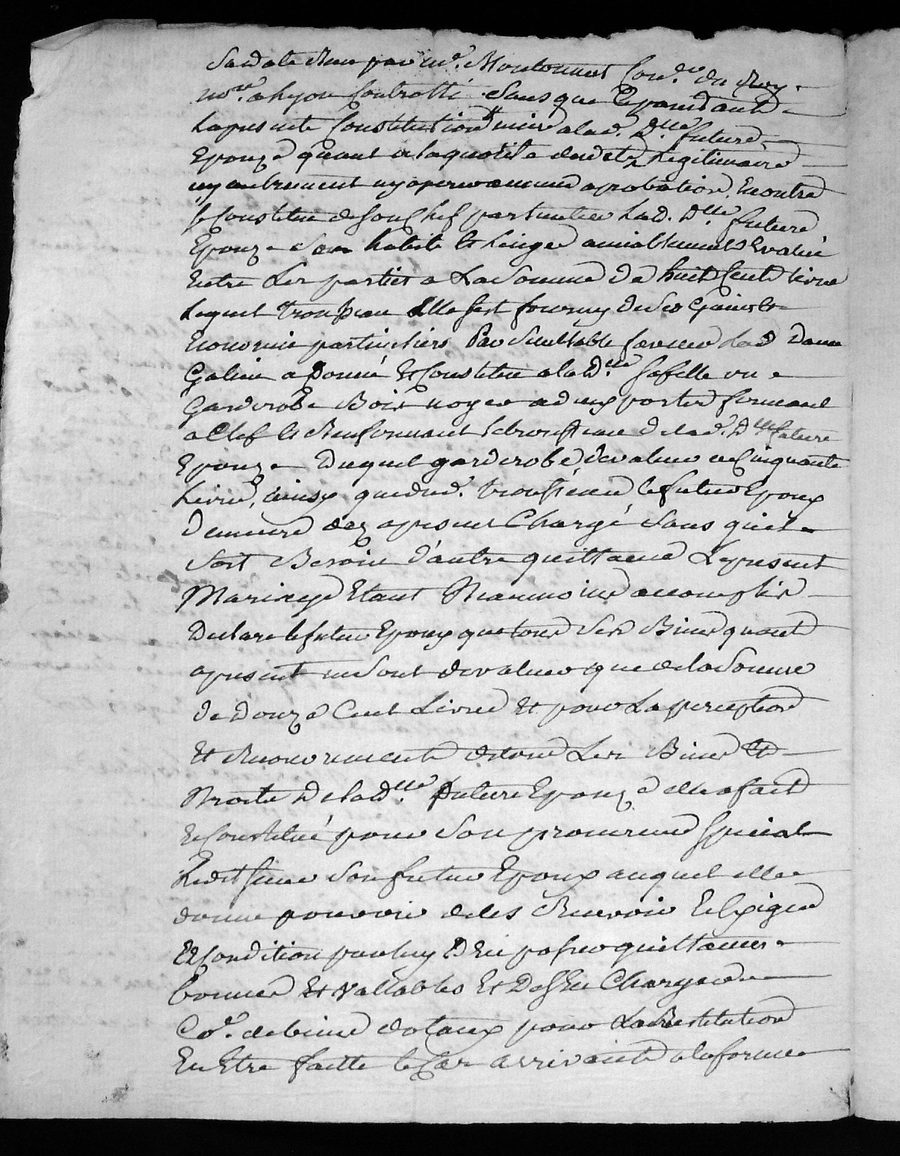 Sa date Reçu par me. Moulonnat Con.er du Roy
no.re a Lyon Controllé Sans que Cependant
La presente Constitution nuise a lad. Dlle future
Epouze quant a la quotité de des dts Legitimaire
ny autrement ny aprouve aucune aprobation En outre
Se Constitue de Son Chef particulier Lad. Dlle future
Epouze Ses habits & Linge amiablement Evalué
Entre Les parties a La Somme de huit Cent Livre
Lequel trousseau Elle s'est fourny de Ses Gains &
Economie particuliers Par Semblable faveur Lad Dame
Galine a Donné Et Constitue a la Dlle Sa fille un
Garderobe Bois noyer a deux portes fermant
a Clef & Renfermant le trousseau de lad. Dlle future
Epouze Duquel garderobe de valeur de Cinquante
Livre, ainsy que dud. trousseau le futur Epoux
Demeure dez apresent Chargé Sans qu'il
Soit Besoin d'autre quittance Le present
Mariage Etant Neanmoins accomplis
Declare le futur Epoux que tous Ses Biens quant
apresent ne Sont de valeur que de la Somme
de Douze Cent Livre Et pour La perception
Et Recouvrement de tous Les Biens &
Droits De lad.lle future Epouze elle a fait
& Constitué pour Son procureur Special
Led Sieur Son futur Epoux auquel elle
donne pouvoir de les Recevoir & Exiger
Et Condition par luy D'En passer quittances
bonnes Et vallables Et D'Estre Chargé
Co.e de biens dotaux pour La Restitution
En Etre faitte le Cas arrivant a la forme